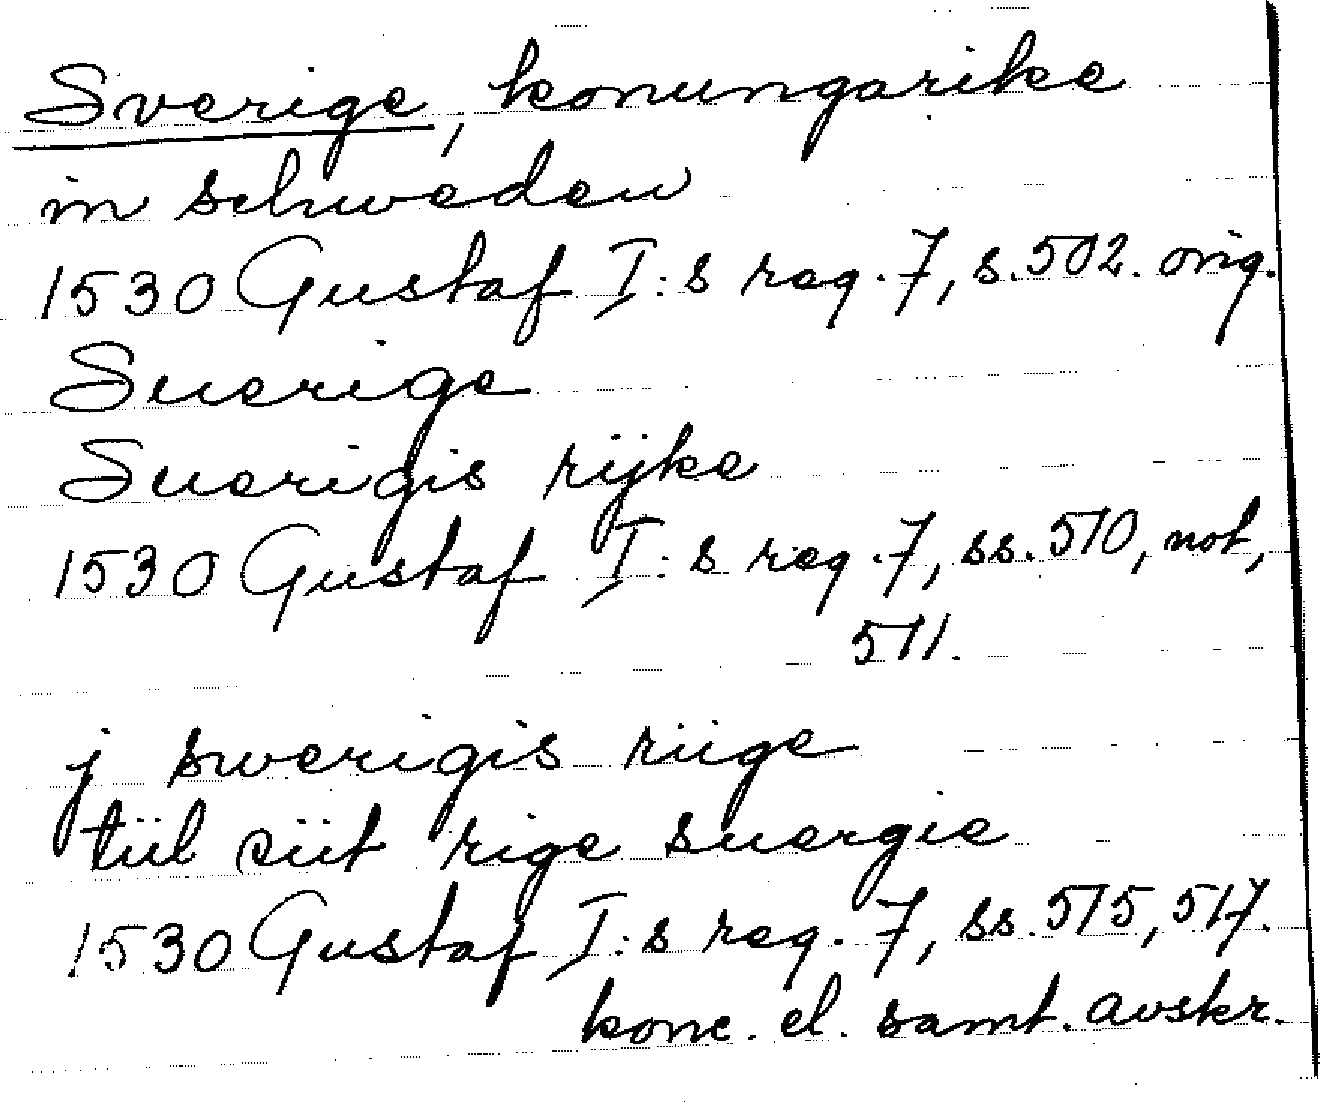 Sverige, konungarike
in schweden
1530 Gustaf I:s reg. 7, s. 502. orig.
Suerige
Suerigis rijke
1530 Gustaf I:s reg. 7, ss. 510, not,
511.
j swerigis riige
tiil siit rige suergie
1530 Gustaf I:s reg. 7, ss. 515, 517.
konc. el. samt. avskr.